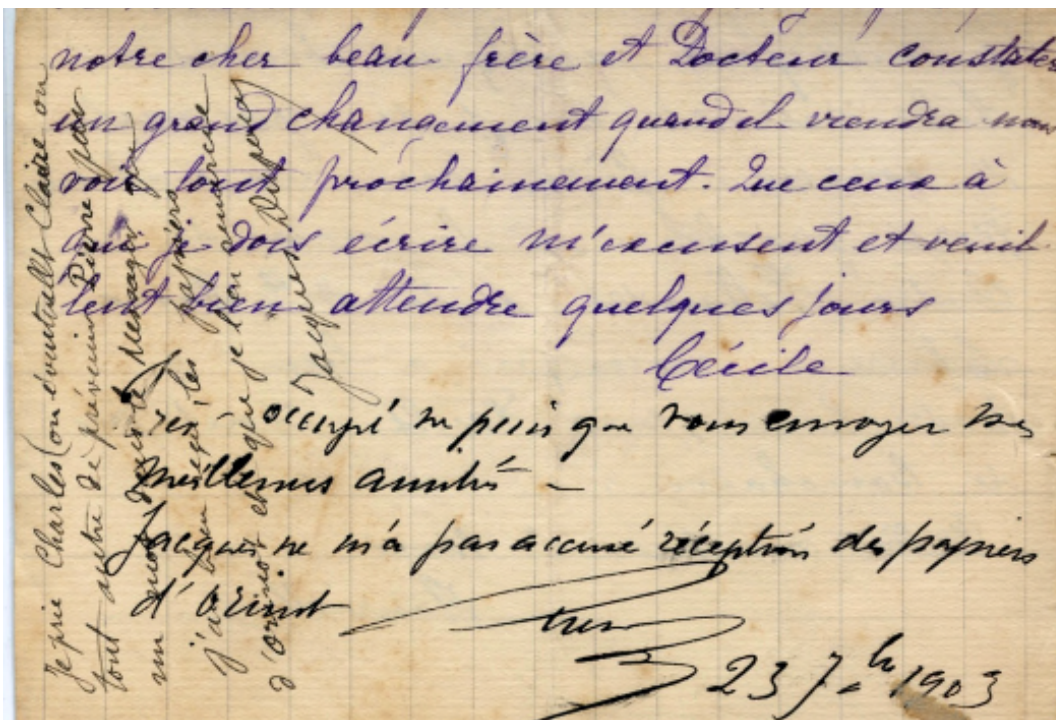 notre cher beau-frère et Docteur constater
un grand changement quand il viendra nous
voir tout prochainement. Que ceux à
qui je dois écrire m'excusent et veuil
lent bien attendre quelques jours
Cécile
occupé ne puis que vous envoyer mes
meilleures amitiés -
Jacques ne m'a pas accusé réception des papiers
d'
23 7bre 1903
Je prie Charles (ou éventuellt Claire ou
tout autre) de prévenir Pierre par
un mot dans le Messager que
j'ai bien reçu les papiers
et que je l'en remercie
Jacques